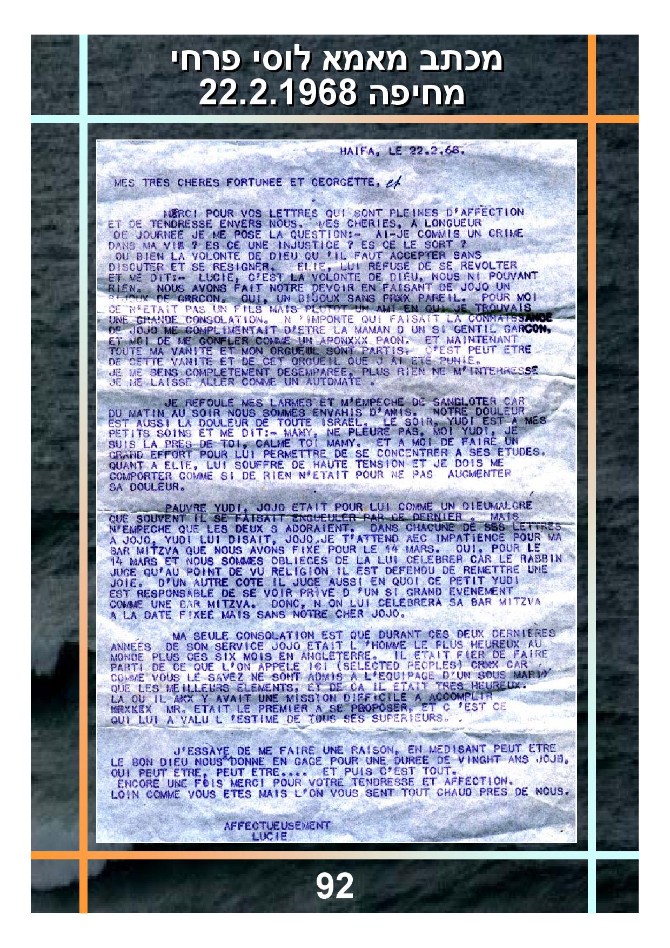 מכתב מאמא לוסי פרחי
מחיפה 22.2.1968
HAIFA, LE 22.2.68.
MES TRES CHERES FORTUNEE ET GEORGETTE, et
MERCI POUR VOS LETTRES QUI SONT PLEINES D'AFFECTION
ET DE TENDRESSE ENVERS NOUS. MES CHERIES, A LONGUEUR
DE JOURNEE JE ME POSE LA QUESTION:- AI-JE COMMIS UN CRIME
DANS MA VIE ? ES CE UNE INJUSTICE ? ES CE LE SORT ?
OU BIEN LA VOLONTE DE DIEU QU'IL FAUT ACCEPTER SANS
DISCUTER ET SE RESIGNER. ELIE, LUI REFUSE DE SE REVOLTER
ET ME DIT:- LUCIE, C'EST LA VOLONTE DE DIEU, NOUS NI POUVANT
RIEN. NOUS AVONS FAIT NOTRE DEVOIR EN FAISANT DE JOJO UN
BIJOUX DE GARCON. OUI, UN BIJOUX SANS PRXX PAREIL. POUR MOI
CE N'ETAIT PAS UN FILS MAIS PLUTOT UN AMI EN QUI JE TROUVAIS
UNE GRANDE CONSOLATION. N'IMPORTE QUI FAISAIT LA CONNAISSANCE
DE JOJO ME COMPLIMENTAIT D'ETRE LA MAMAN D UN SI GENTIL GARCON,
ET MOI DE ME GONFLER COMME UN APONXXX PAON. ET MAINTENANT
TOUTE MA VANITE ET MON ORGUEUL SONT PARTIS. C'EST PEUT ETRE
DE CETTE VANITE ET DE CET ORGUEIL QUE J'AI ETE PUNIE.
JE ME SENS COMPLETEMENT DESEMPAREE, PLUS RIEN NE M'INTERRESSE
JE ME LAISSE ALLER COMME UN AUTOMATE .
JE REFOULE MES LARMES ET M'EMPECHE DE SANGLOTER CAR
DU MATIN AU SOIR NOUS SOMMES ENVAHIS D'AMIS. NOTRE DOULEUR
EST AUSSI LA DOULEUR DE TOUTE ISRAEL. LE SOIR, YUDI EST A MES
PETITS SOINS ET ME DIT:- MAMY, NE PLEURE PAS, MOI YUDI, JE
SUIS LA PRES DE TOI, CALME TOI MAMY. ET A MOI DE FAIRE UN
GRAND EFFORT POUR LUI PERMETTRE DE SE CONCENTRER A SES ETUDES.
QUANT A ELIE, LUI SOUFFRE DE HAUTE TENSION ET JE DOIS ME
COMPORTER COMME SI DE RIEN N'ETAIT POUR NE PAS AUGMENTER
SA DOULEUR.
PAUVRE YUDI, JOJO ETAIT POUR LUI COMME UN DIEUMALGRE
QUE SOUVENT IL SE FAISAIT ENGUEULER PAR CE DERNIER. MAIS
N'EMPECHE QUE LES DEUX S ADORAIENT. DANS CHACUNE DE SES LETTRES
A JOJO, YUDI LUI DISAIT, JOJO JE T'ATTEND AEC IMPATIENCE POUR MA
BAR MITZVA QUE NOUS AVONS FIXE POUR LE 14 MARS. OUI, POUR LE
14 MARS ET NOUS SOMMES OBLIEGES DE LA LUI CELEBRER CAR LE RABBIN
JUGE QU'AU POINT DE VU RELIGION IL EST DEFENDU DE REMETTRE UNE
JOIE. D'UN AUTRE COTE IL JUGE AUSSI EN QUOI CE PETIT YUDI
EST RESPONSABLE DE SE VOIR PRIVE D 'UN SI GRAND EVENEMENT
COMME UNE BAR MITZVA. DONC, N ON LUI CELEBRERA SA BAR MITZVA
A LA DATE FIXEE MAIS SANS NOTRE CHER JOJO.
MA SEULE CONSOLATION EST QUE DURANT CES DEUX DERNIERES
ANNEES DE SON SERVICE JOJO ETAIT L'HOMME LE PLUS HEUREUX AU
MONDE PLUS CES SIX MOIS EN ANGLETERRE. IL ETAIT FIER DE FAIRE
PARTI DE CE QUE L'ON APPELE ICI (SELECTED PEOPLES) CRXX CAR
COMME VOUS LE SAVEZ NE SONT ADMIS A L'EQUIPAGE D'UN SOUS MARIN
QUE LES MEILLEURS ELEMENTS, ET DE CA IL ETAIT TRES HEUREUX.
LA OU IL AXX Y AVAIT UNE MISSION DIFFICILE A ACCOMPLIR
MRXXEX MR. ETAIT LE PREMIER A SE PROPOSER, ET C 'EST CE
QUI LUI A VALU L 'ESTIME DE TOUS SES SUPERIEURS.
J'ESSAYE DE ME FAIRE UNE RAISON, EN MEDISANT PEUT ETRE
LE BON DIEU NOUS DONNE EN GAGE POUR UNE DUREE DE VINGHT ANS JOJO,
OUI PEUT ETRE, PEUT ETRE.... ET PUIS C'EST TOUT.
ENCORE UNE FOIS MERCI POUR VOTRE TENDRESSE ET AFFECTION.
LOIN COMME VOUS ETES MAIS L'ON VOUS SENT TOUT CHAUD PRES DE NOUS.
AFFECTUEUSEMENT
LUCIE
92